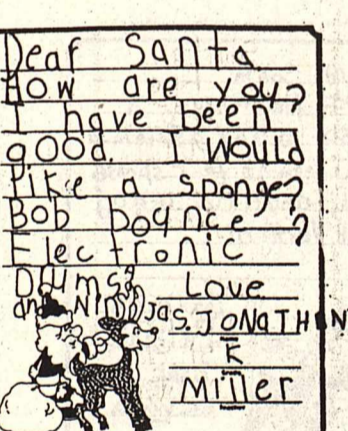 Dear Santa
How are you?
I have been
good. I would
like a sponge?
Bob bounce ?
Electronic
Drums?
and Ninjas. Love
JONATHEN
K
Miller